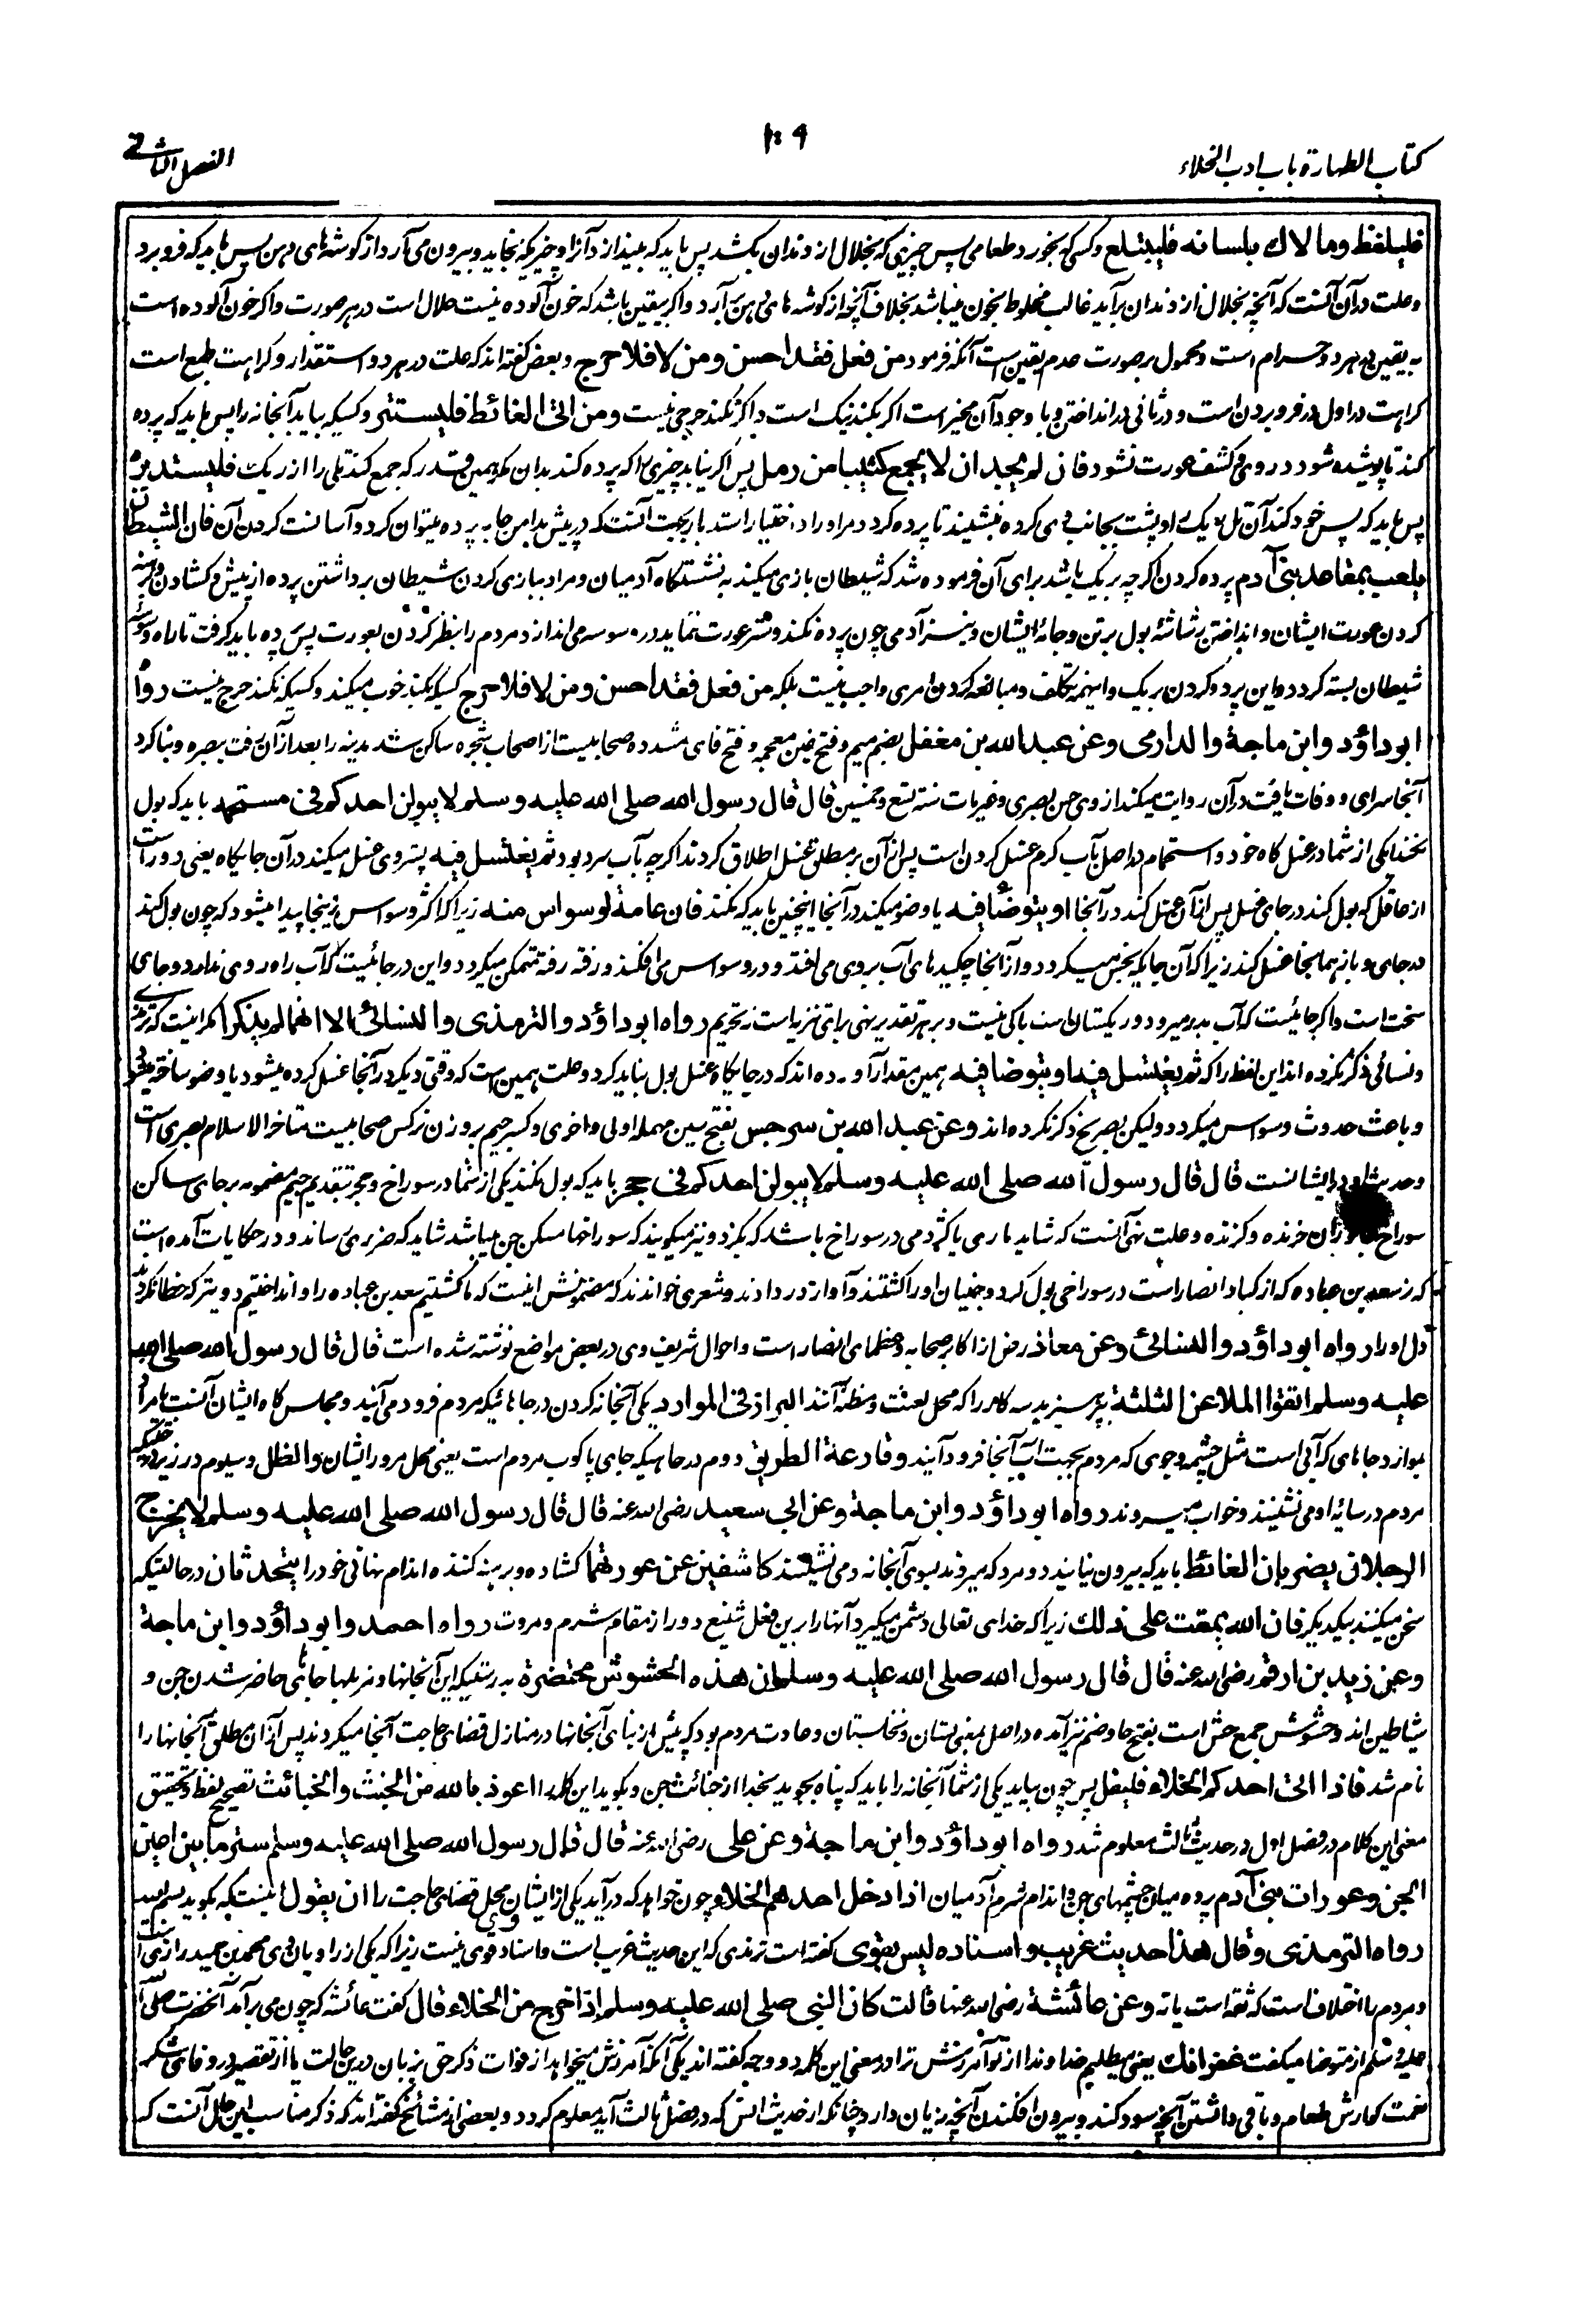 كتاب الطهارة باب ادب الخلاء
۲۰۹
الفصل الثانى
فليلفظ وما لاك بلسانه فليبتلع وکسی که بخورد طعامی پس چیزی که بخلال از دندان بکشد پس باید که بیندازد آنرا و چیزیکه بخاید و بیرون می آرد از گوشه های دهن پس باید که فرو برد
و علت در آن آنست که آنچه بخلال از دندان برآید غالب مخلوط بخون میباشد بخلاف آنچه از گوشه های دهن برآرد و اگر یقین باشد که خون آلوده نیست حلال است در هر صورت و اگر خون آلوده است
به یقین هر دو حرام است و محمول بر صورت عدم یقین ست آنکه فرمود من فعل فقد احسن ومن لا فلا حرج و بعض گفته اند که علت در هر دو استقذار و کراهت طبع است
کراهت در اول در فرو بردن است و در ثانی در انداختن و با وجود آن مخیر است اگر بکند نیک است و اگر نکند حرجی نیست ومن اتى الغائط فليستتر وکسیکه بیاید آبخانه را پس باید که پرده
کند تا پوشیده شود در وی و کشف عورت نشود فان لم يجد الا ان يجمع كثيبا من رمل پس اگر نیابد چیزی را که پرده کند بدان مگر همین قدر که جمع کند تلی را از ریگ فليستدبره
پس باید که پس خود کند آن تل ریگ را و پشت بجانب وی کرده بنشیند تا پرده گردد مر او را و اختیار استدبار بجهت آنست که در پیش بدامن جامه پرده میتوان کرد و آسانست کردن آن فان الشيطان
يلعب بمقاعد بنى آدم پرده کردن اگرچه بریگ باشد برای آن فرموده شد که شیطان بازی میکند به نشستگاه آدمیان و مراد ببازی کردن شیطان برداشتن پرده از پیش و کشادن و برهنه
کردن عورت ایشان و انداختن رشاشهٔ بول بر تن و جامهٔ ایشان و نیز آدمی چون پرده نکند و ستر عورت ننماید در وسوسه می اندازد مردم را بنظر کردن بعورت پس پرده باید گرفت تا راه وسوسه
شیطان بسته گردد و این پرده کردن بریگ و اینهمه تکلف و مبالغه کردن امری واجب نیست بلکه من فعل فقد احسن ومن لا فلا حرج کسیکه بکند خوب میکند و کسیکه نکند حرج نیست رواه
ابوداؤد وابن ماجة والدارمى وعن عبد الله بن مغفل بضم میم و فتح غین معجمه و فتح فای مشدده صحابیست از اصحاب شجره ساکن شد مدینه را بعد از آن رفت ببصره و بنا کرد
آنجا سرای و وفات یافت در آن روایت میکند از وی حسن بصری و غیره مات سنه تسع و خمسین قال قال رسول الله صلى الله عليه وسلم لا يبولن احدكم فى مستحمه باید که بول
نکند یکی از شما در غسل گاه خود و استحمام در اصل بآب گرم غسل کردن است پس از آن بر مطلق غسل اطلاق کردند اگرچه بآب سرد بود ثم يغتسل فيه پستر وی غسل میکند در آن جایگاه یعنی دور است
از عاقل که بول کند در جای غسل پس از آن غسل کند در آنجا او يتوضأ فيه یا وضو میکند در آنجا اینچنین باید که نکند فان عامة الوسواس منه زیرا که اکثر وسواس از ینجا پیدا میشود که چون بول کند
در جای و باز هما نجا غسل کند زیرا که آن جایگه نجس میگردد و از آنجا چکیدهای آب بروی می افتد و در وسواس می افکند و رفته رفته متمکن میگردد و این در جائیست که آب راه روی ندارد و جای
سخت است و اگر جائیست که آب بدر میرود و ریگستان است باکی نیست و بر هر تقدیر نهی برای تنزیه است نه تحریم رواه ابوداؤد والترمذى والنسائى الا انهما لم يذكرا مگر اینست که ترمذی
و نسائی ذکر نکرده اند این لفظ را که ثم يغتسل فيه او يتوضأ فيه همین مقدار آورده اند که در جایگاه غسل بول نباید کرد و علت همین ست که وقتی دیگر در آنجا غسل کرده میشود یا وضو ساخته میشود
و باعث حدوث وسواس میگردد و لیکن بصریح ذکر نکرده اند وعن عبد الله بن سرجس بفتح سین مهمله اولی و اخری و کسر جیم بر وزن نرگس صحابیست متاخر الاسلام بصری است
و حدیث او در ایشانست قال قال رسول الله صلى الله عليه وسلم لا يبولن احدكم فى جحر باید که بول نکند یکی از شما در سوراخ و جحر بتقدیم جیم مضمومه بر حای ساکن
سوراخ جانوران خزنده و گزنده و علت نهی آنست که شاید ماری یا کژدمی در سوراخ باشد که بگزد و نیز میگویند که سوراخها مسکن جن میباشد شاید که ضرری رساند و در حکایات آمده است
که سعد بن عباده که از کبار انصار است در سوراخی بول کرد و جنیان او را کشتند و آواز در دادند و شعری خواندند که مضمونش اینست که ما کشتیم سعد بن عباده را و انداختیم دو تیر که خطا نکردند
دل او را رواه ابوداؤد والنسائى وعن معاذ رض از اکابر صحابه و عظمای انصار است و احوال شریف وی در بعض مواضع نوشته شده است قال قال رسول الله صلى الله
عليه وسلم اتقوا الملاعن الثلثة بپرهیزید سه کار را که محل لعنت و مظنهٔ آنند البراز فى الموارد یکی آبخانه کردن در جاهائیکه مردم فرود می آیند و مجلس گاه ایشان آنست یا مراد
بموارد جاهای که آبی است مثل چشمه و جوی که مردم بجهت آب آنجا فرود آیند وقارعة الطريق دوم در جائیکه جای پاکوب مردم است یعنی محل مرور ایشان والظل و سیوم در زیر درختیکه
مردم در سایهٔ او می نشینند و خواب میروند رواه ابوداؤد وابن ماجة وعن ابى سعيد رضی الله عنه قال قال رسول الله صلى الله عليه وسلم لا يخرج
الرجلان يضربان الغائط باید که بیرون نیایند دو مرد که میروند بسوی آبخانه و می نشینند كاشفين عن عورتهما کشاده و برهنه کننده اندام نهانی خود را يتحدثان در حالتیکه
سخن میکنند بیکدیگر فان الله يمقت على ذلك زیرا که خدای تعالی دشمن میگیرد آنها را برین فعل شنیع دور از مقام شرم و مروت رواه احمد وابوداؤد وابن ماجة
وعن زيد بن ارقم رضی الله عنه قال قال رسول الله صلى الله عليه وسلم ان هذه الحشوش محتضرة بدرستیکه این آبخانها و مزبلها جای حاضر شدن جن و
شیاطین اند و حشوش جمع حش است بفتح حا و ضم نیز آمده در اصل بمعنی بستان و نخلستان و عادت مردم بود که پیش از بنای آبخانها در منازل قضای حاجت آنجا میکردند پس از آن مطلق آبخانها را
نام شد فاذا اتى احدكم الخلاء فليقل پس چون بیاید یکی از شما آبخانه را باید که پناه بجوید بخدا از خبائث جن و بگوید این کلمه را اعوذ بالله من الخبث والخبائث تصحیح لفظ و تحقیق
معنی این کلام در فصل اول در حدیث ثالث معلوم شد رواه ابوداؤد وابن ماجة وعن على رضی الله عنه قال قال رسول الله صلى الله عليه وسلم ستر ما بين اعين
الجن وعورات بنى آدم پرده میان چشمهای جن و اندام شرم آدمیان اذا دخل احدهم الخلاء چون خواهد که در آید یکی از ایشان محل قضای حاجت را ان يقول اینست که بگوید بسم الله
رواه الترمذى وقال هذا حديث غريب واسناده ليس بقوى گفته است ترمذی که این حدیث غریب است و اسناد وی قوی نیست زیرا که یکی از راویان وی محمد بن حمید رازی است
و مردم را اختلاف است که ثقه است یا نه وعن عائشة رضی الله عنها قالت كان النبى صلى الله عليه وسلم اذا خرج من الخلاء قال گفت عائشه که چون می برآمد آنحضرت صلی الله
علیه و سلم از متوضا میگفت غفرانك یعنی میطلبم خداوندا از تو آمرزش ترا و در معنی این کلمه دو وجه گفته اند یکی آنکه آمرزش میخواهد از فوات ذکر حق بزبان درین حالت یا از تقصیر در وفای شکر
نعمت گوارش طعام و باقی داشتن آنچه سود کند و بیرون افکندن آنچه زیان دارد چنانکه از حدیث انس که در فصل ثالث آید معلوم گردد و بعضی از مشائخ گفته اند که ذکر مناسب این حال آنست که